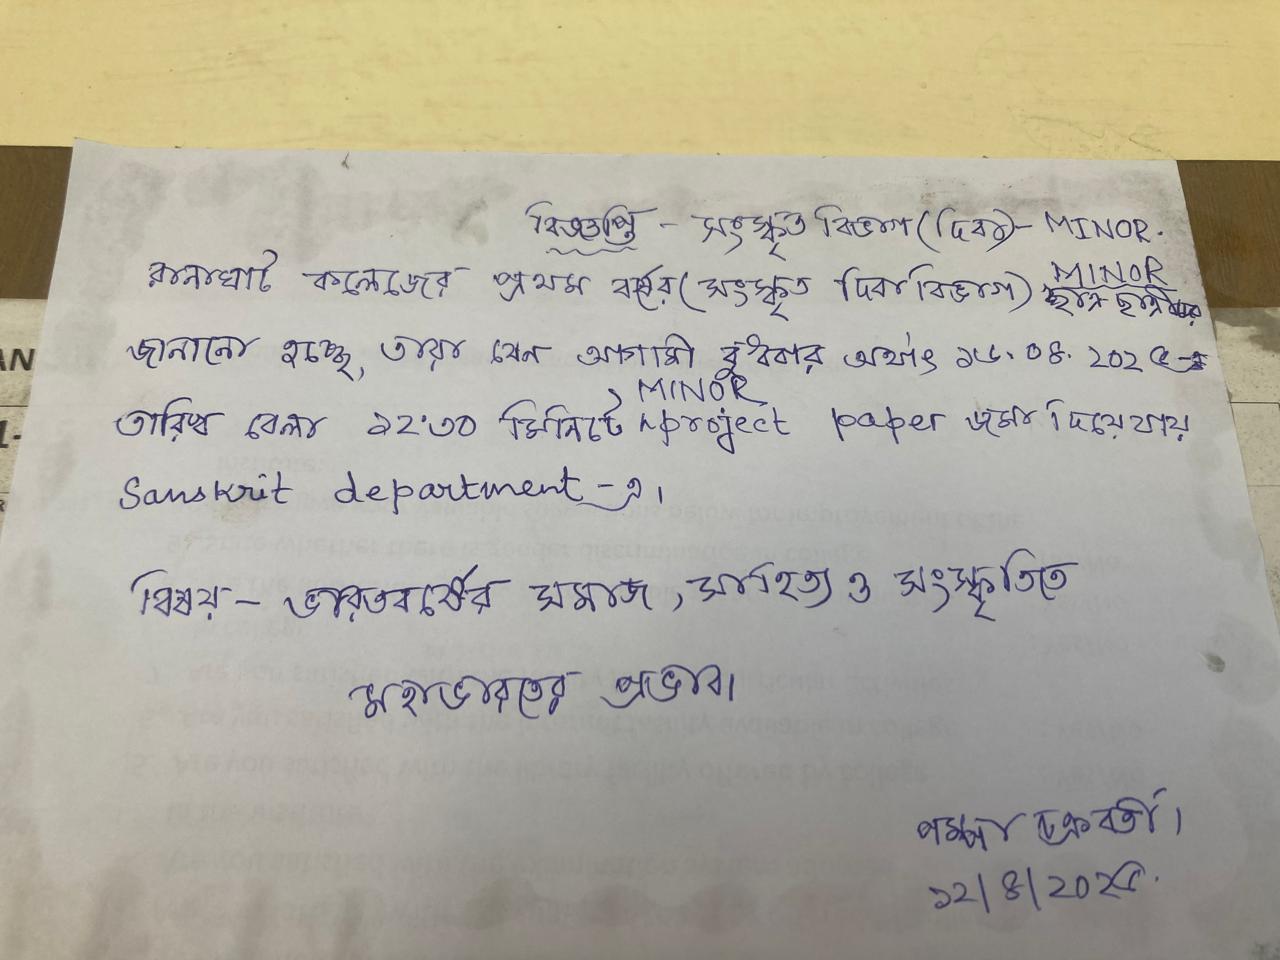 বিজ্ঞপ্তি - সংস্কৃত বিভাগ (দিবা) - MINOR.
রানাঘাট কলেজের প্রথম বর্ষের (সংস্কৃত দিবা বিভাগ) MINOR ছাত্র ছাত্রীদের
জানানো হচ্ছে, তারা যেন আগামী বুধবার অর্থাৎ
তারিখ বেলা ১২:৩০ মিনিটে MINOR project paper জমা দিয়ে যায়
Sanskrit department - এ।
বিষয় - ভারতবর্ষের সমাজ, সাহিত্য ও সংস্কৃতিতে
মহাভারতের প্রভাব।
পম্পা চক্রবর্তী।